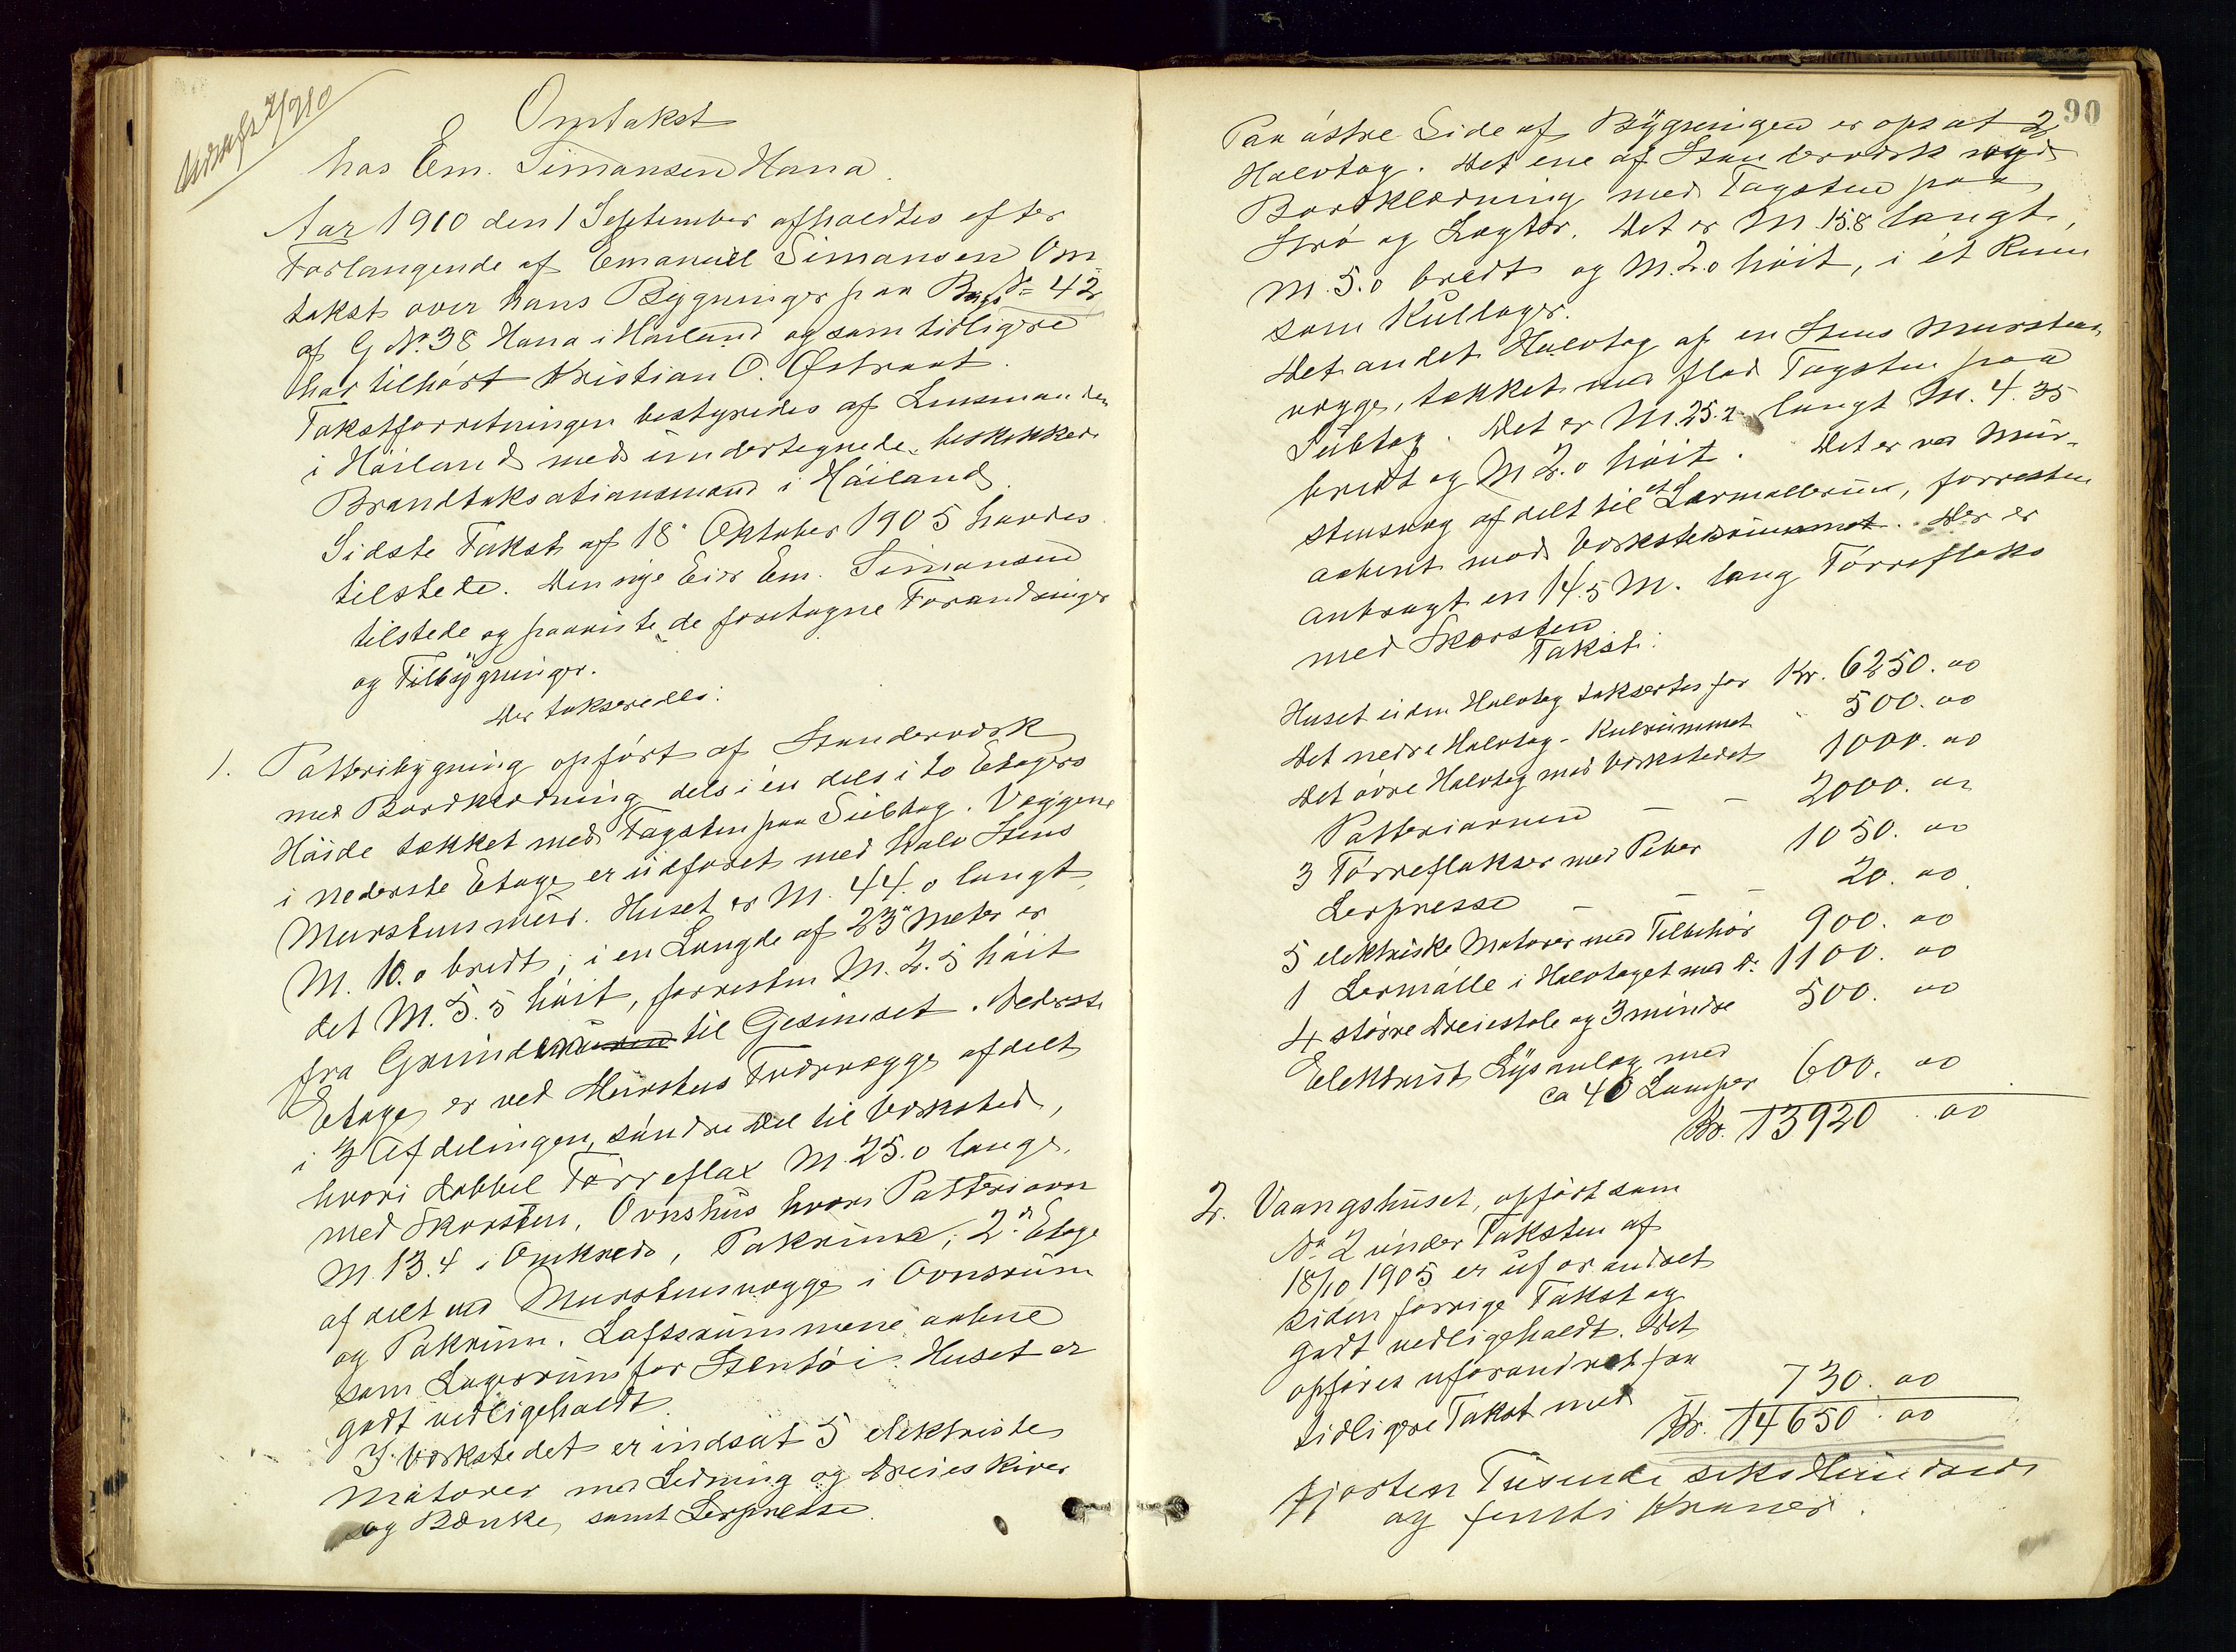 Udskrft 2/9 10
Omtakst
hos Em. Simonsen Hana.
Aar 1910 den 1 September afholdtes efter
Forlangende af Emanuel Simonsen Om
takst over hans Bygninger paa Brugs No 42
af G No. 38 Hana i Høiland og som tidligere
har tilhørt Kristian O. Østraat.
Takstforretningen bestyredes af Lensmanden
i Høiland med undertegnede beskikkede
Brandtaksationsmænd i Høiland.
Sidste Takst af 18 Oktober 1905 havdes
tilstede. Den nye Eier Em. Simonsen
tilstede og paaviste de foretagne Forandringer
og Tilbygninger.
Der takseredes:
1. Potteribygning opført af Stenderværk
med Bordklædning dels i én dels i to Etagers
Høide tækket med Tagsten paa Subtag. Væggene
i nederste Etage er udforet med halv Stens
Murstensmur. Huset er M. 44.0 langt,
M. 10.0 bredt; i en Længde af 23 Meter er
det M. 5.5 høit, forresten M. 2.5 høit
fra Grundmuren til Gesimset. Nederste
Etage er ved Murstens Tverrvægge afdelt
i 3 Afdelinger, søndre Del til Værksted,
hvori dobbel Tørreflax M. 25.0 lange,
med Skorsten, Ovnshus hvori Potteriovn
M. 13.4 i Omkreds, Pakrum; 2den Etage
afdelt ved Murstensvægge i Ovnsrum
og Pakrum. Loftsrummene aabne
som Lagerrum for Stentøi. Huset er
godt vedligeholdt.
I Værkstedet er indsat 5 elektriske
Motorer med Ledning og Dreieskiver
og Bænke, samt Lerpresse.
90
Paa østre Side af Bygningen er opsat 2
Halvtag. Det ene af Stenderværk med
Bordklædning med Tagsten paa
Strø og Lægter. Det er M. 15.8 langt,
M. 5.0 bredt og M. 2.0 høit, i ét Rum
som Kullager.
Det andet Halvtag af en Stens Murstens
vægge, tækket med flad Tagsten paa
Subtag. Det er M. 25.2 langt M. 4.35
bredt og M 2.0 høit. Det er ved Mur-
stensvæg afdelt til et Lermøllerum, forresten
aabent mod Værkstedsrummet. Her er
anbragt en 14.5 M. lang Tørreflaks
med Skorsten
Takst:
Huset uden Halvtag takseres for Kr. 6250.00
Det nedre Halvtag - Kulrummet " 500.00
Det øvre Halvtag med Værkstedet 1000.00
Potteriovnen — — 2000.00
3 Tørreflakser med Piber 1050.00
Lerpresse — — 20.00
5 elektriske Motorer med Tilbehør 900.00
1 Lermølle i Halvtaget med Do 1100.00
4 større Dreiestole og 3 mindre 500.00
Elektrisk Lysanlæg med
ca 40 Lamper 600.00
Kr. 13920.00
2. Vaangshuset, opført som
No 2 under Taksten af
18/10 1905 er uforandret
siden forrige Takst og
godt vedligeholdt. Det
opføres uforandret fra
tidligere Takst med 730.00
Kr. 14650.00
Fjorten Tusende seks Hundrede
og femti Kroner.